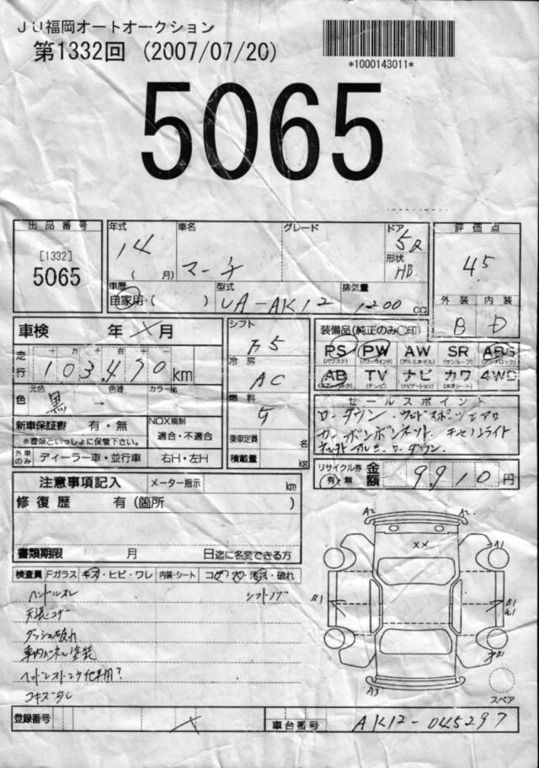 JU福岡オートオークション
第1332回 (2007/07/20)
*1000143011*
5065
出品番号
[1332]
5065
年式 車名 グレード ドア 評価点
14 マーチ 5D 4.5
(月) 形状 HB
車歴 型式 排気量 外装 内装
自家用・( ) UA-AK12 1200 cc B D
車検 年 × 月
シフト F5
装備品(純正のみ○印)
走行 十万 万 千 百 十
103,470 km
冷房 AC
PS PW AW SR ABS
(パワステ) (パワーウィンド) (アルミホイル) (サンルーフ)
AB TV ナビ カワ 4WD
(エアーバック) (テレビ) (ナビゲーション) (本革シート)
元色 色替 カラーNo.
色 黒 →
燃料 ガ
セールスポイント
ローダウン・
カーボンボンネット・
ローダウン
新車保証書 有・無
※書類といっしょに保管下さい。
NOX規制
適合・不適合
乗車定員 名
外車のみ ディーラー車・並行車 右H・左H
積載量 kg
リサイクル券 有・無 金額 9910円
注意事項記入 メーター指示 km
修復歴 有(箇所 )
書類期限 月 日迄に名変できる方
検査員 Fガラス キズ・ヒビ・ワレ 内装・シート コゲ 穴・汚れ・破れ
ハンドルスレ シフトノブ
天張コゲ
ダッシュ破れ
車内パネル塗装
コキズ
A2 A2
××
A1
B1 B1
A3
スペア
登録番号 車台番号 AK12-045297